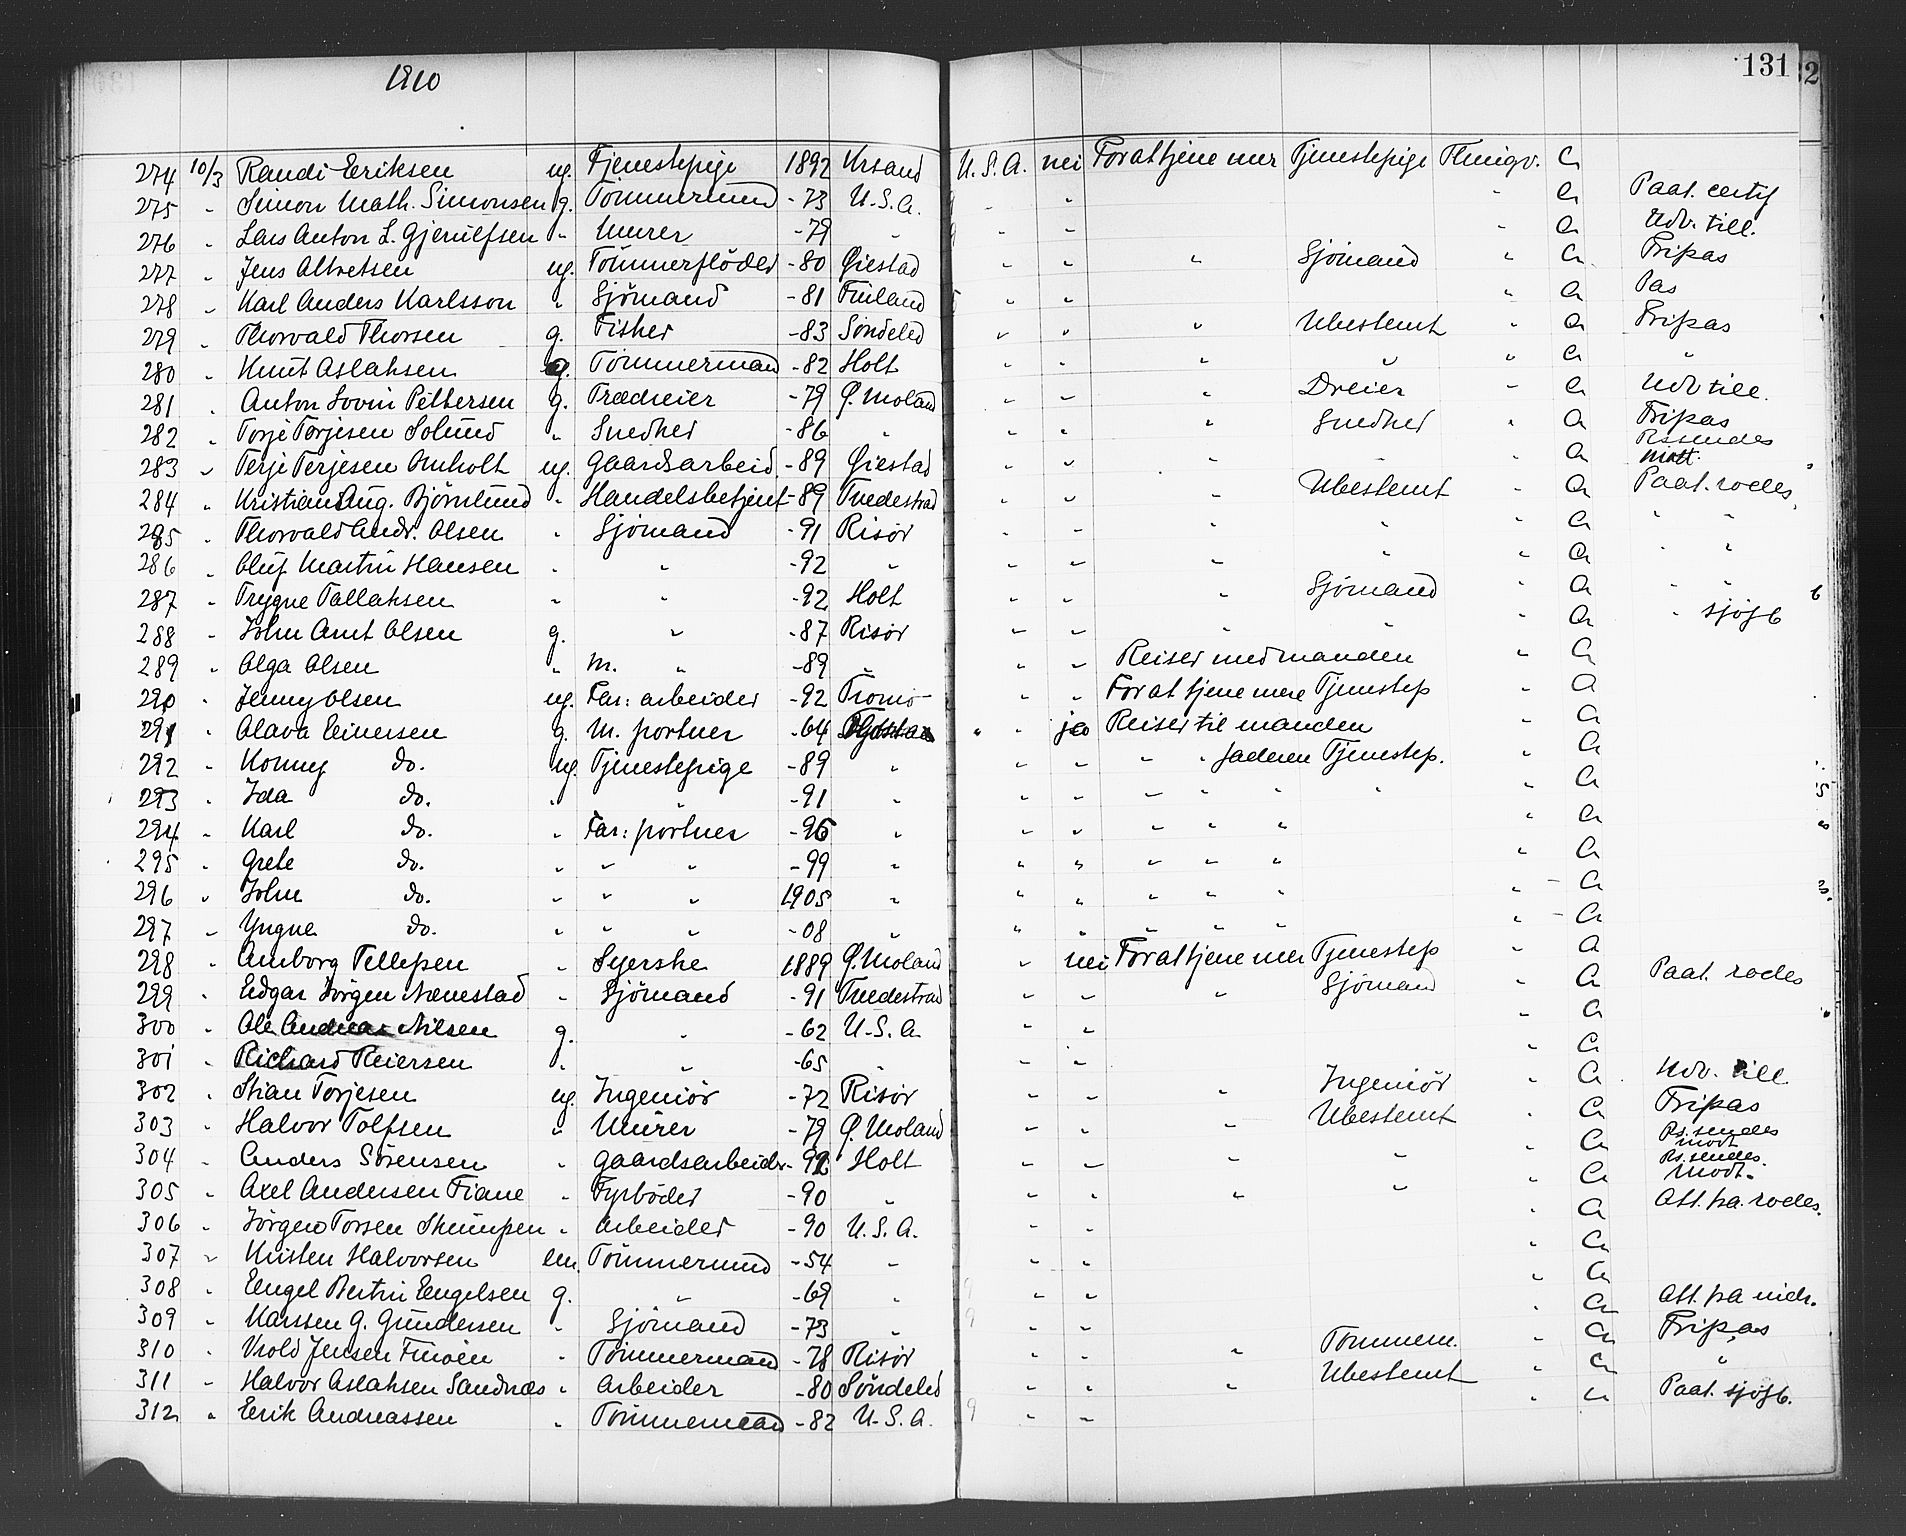 1910 131
274 10/3 Randi Eeriksen ug. Tjenestepige 1892 Krsand U.S.A. nei For at tjene mer Tjenestepige Flmigv. A
275 " Simon Math. Simonsen g. Tømmermand -73 U.S.A. " " " A Paat. certf
276 " Lars Anton L. Gjerulfsen " Murer -79 " " " " A Udv. till.
277 " Jens Alfretsen ug. Tømmerfløder -80 Øiestad " " " Sjømand " A Fripas
278 " Karl Anders Karlsson " Sjømand -81 Finland " " " A Pas
279 " Thorvald Thorsen g. Fisker -83 Søndeled " " " Ubestemt " A Fripas
280 " Knut Aslaksen ug. Tømmermand -82 Holt " " " " " A "
281 " Anton Lovin Pettersen g. Trædreier -79 Ø. Moland " " " Dreier " A Udv till.
282 " Torje Terjesen Solund " Snedker -86 " " " " Snedker " A Fripas
283 " Terje Terjesen Omholt ug. Gaardsarbeid. -89 Øiestad " " " " " A Ps sendes mott.
284 " Kristian Aug. Bjørnlund " Handelsbetjent -89 Tvedestrad " " " Ubestemt " A Paat. rodes.
285 " Thorvald Andr. Olsen " Sjømand -91 Risør " " " " " A " "
286 " Oluf Martin Hansen " " -92 " " " " " " A " "
287 " Trygve Tallaksen " " -92 Holt " " " Sjømand " A " "
288 " John Arnt Olsen g. " -87 Risør " " " " " A " sjøfb
289 " Olga Olsen " M. " -89 " " " Reiser med manden " A
290 " Jenny Olsen ug. Far: arbeider -92 Tromø " " For at tjene mere Tjenestep " A
291 " Olava Einersen g. M. portner -64 " " ja Reiser til manden " A
292 " Konny do. ug. Tjenestepige -89 " " " " " faderen Tjenestep. " A
293 " Ida do. " " -91 " " " " " " " A
294 " Karl do. " Far: portner -96 " " " " " " " A
295 " Grete do. " " " -99 " " " " " " " A
296 " John do. " " " 1905 " " " " " " " A
297 " Yngve do. " " " -08 " " " " " " " A
298 " Amborg Tellefsen " Syerske 1889 Ø. Moland " nei For at tjene mer Tjenestep " A
299 " Edgar Jørgen Nævestad " Sjømand -91 Tvedestrad " " " Sjømand " A Paat. rodes
300 " Ole Andreas Nilsen g. " -62 U.S.A " " " A
301 " Richard Reiersen " " -65 " " " " A
302 " Stian Torjesen ug. Ingeniør -72 Risør " " " Ingeniør " A Udv. till
303 " Halvor Tolfsen " Murer -79 Ø. Moland " " " Ubestemt " A Fripas
304 " Anders Sørensen " Gaardsarbeider -92 Holt " " " " " A Ps. sendes modt
305 " Axel Andersen Fiane " Fyrbøder -90 " " " " " " A Ps. sendes. modt.
306 " Jørgen Torsen Skumpen " Arbeider -90 U.S.A. " " " A Att. fra rodes.
307 " Kristen Halvorsen em. Tømmermand -54 " " " " A
308 " Engel Bertin Engelsen g. " -69 " " " " A
309 " Karsten G. Gundersen " Sjømand -73 " " " " A Att. fra
310 " Vrold Jensen " Tømmermand -78 Risør " " " Tømmerm. " A Fripas
311 " Halvor Aslaksen Sandnæs " Arbeider -80 Søndeled " " " Ubestemt " A "
312 " Eerik Andreassen " Tømmermand -82 U.S.A. " " " A Paat. sjøfb.